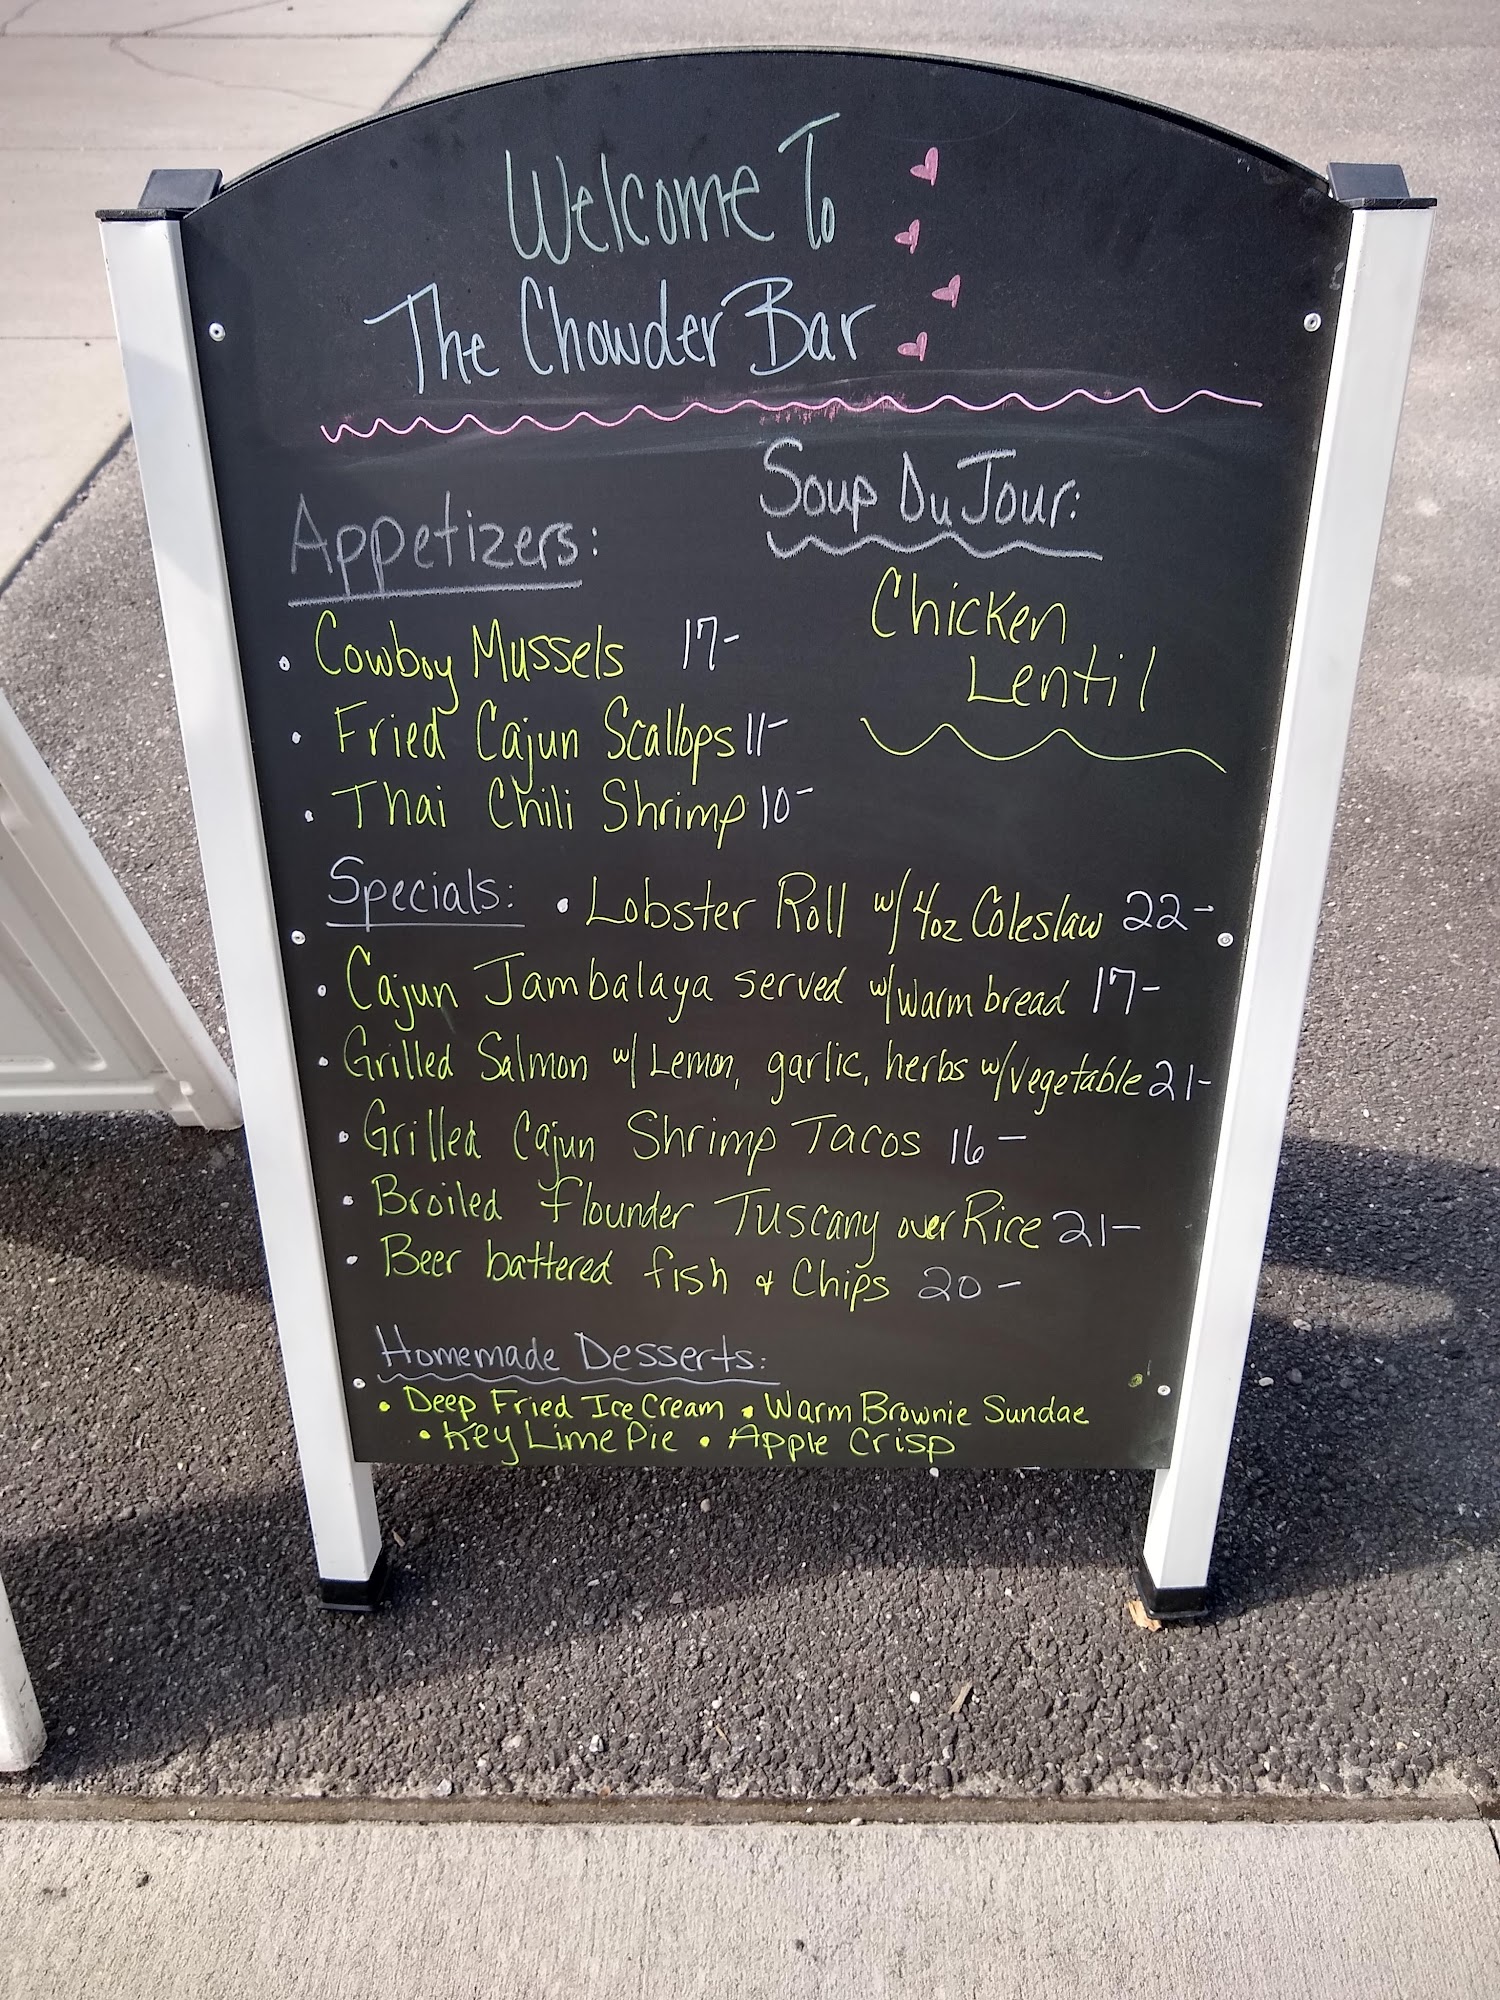 Welcome To
The Chowder Bar
Soup Du Jour:
Chicken
Lentil
Appetizers:
• Cowboy Mussels 17-
• Fried Cajun Scallops 11-
• Thai Chili Shrimp 10-
Specials: • Lobster Roll w/ 4oz Coleslaw 22-
• Cajun Jambalaya served w/ warm bread 17-
• Grilled Salmon w/ Lemon, garlic, herbs w/ Vegetable 21-
• Grilled Cajun Shrimp Tacos 16-
• Broiled flounder Tuscany over Rice 21-
• Beer battered fish & Chips 20-
Homemade Desserts:
• Deep Fried Ice Cream • Warm Brownie Sundae
• Key Lime Pie • Apple Crisp